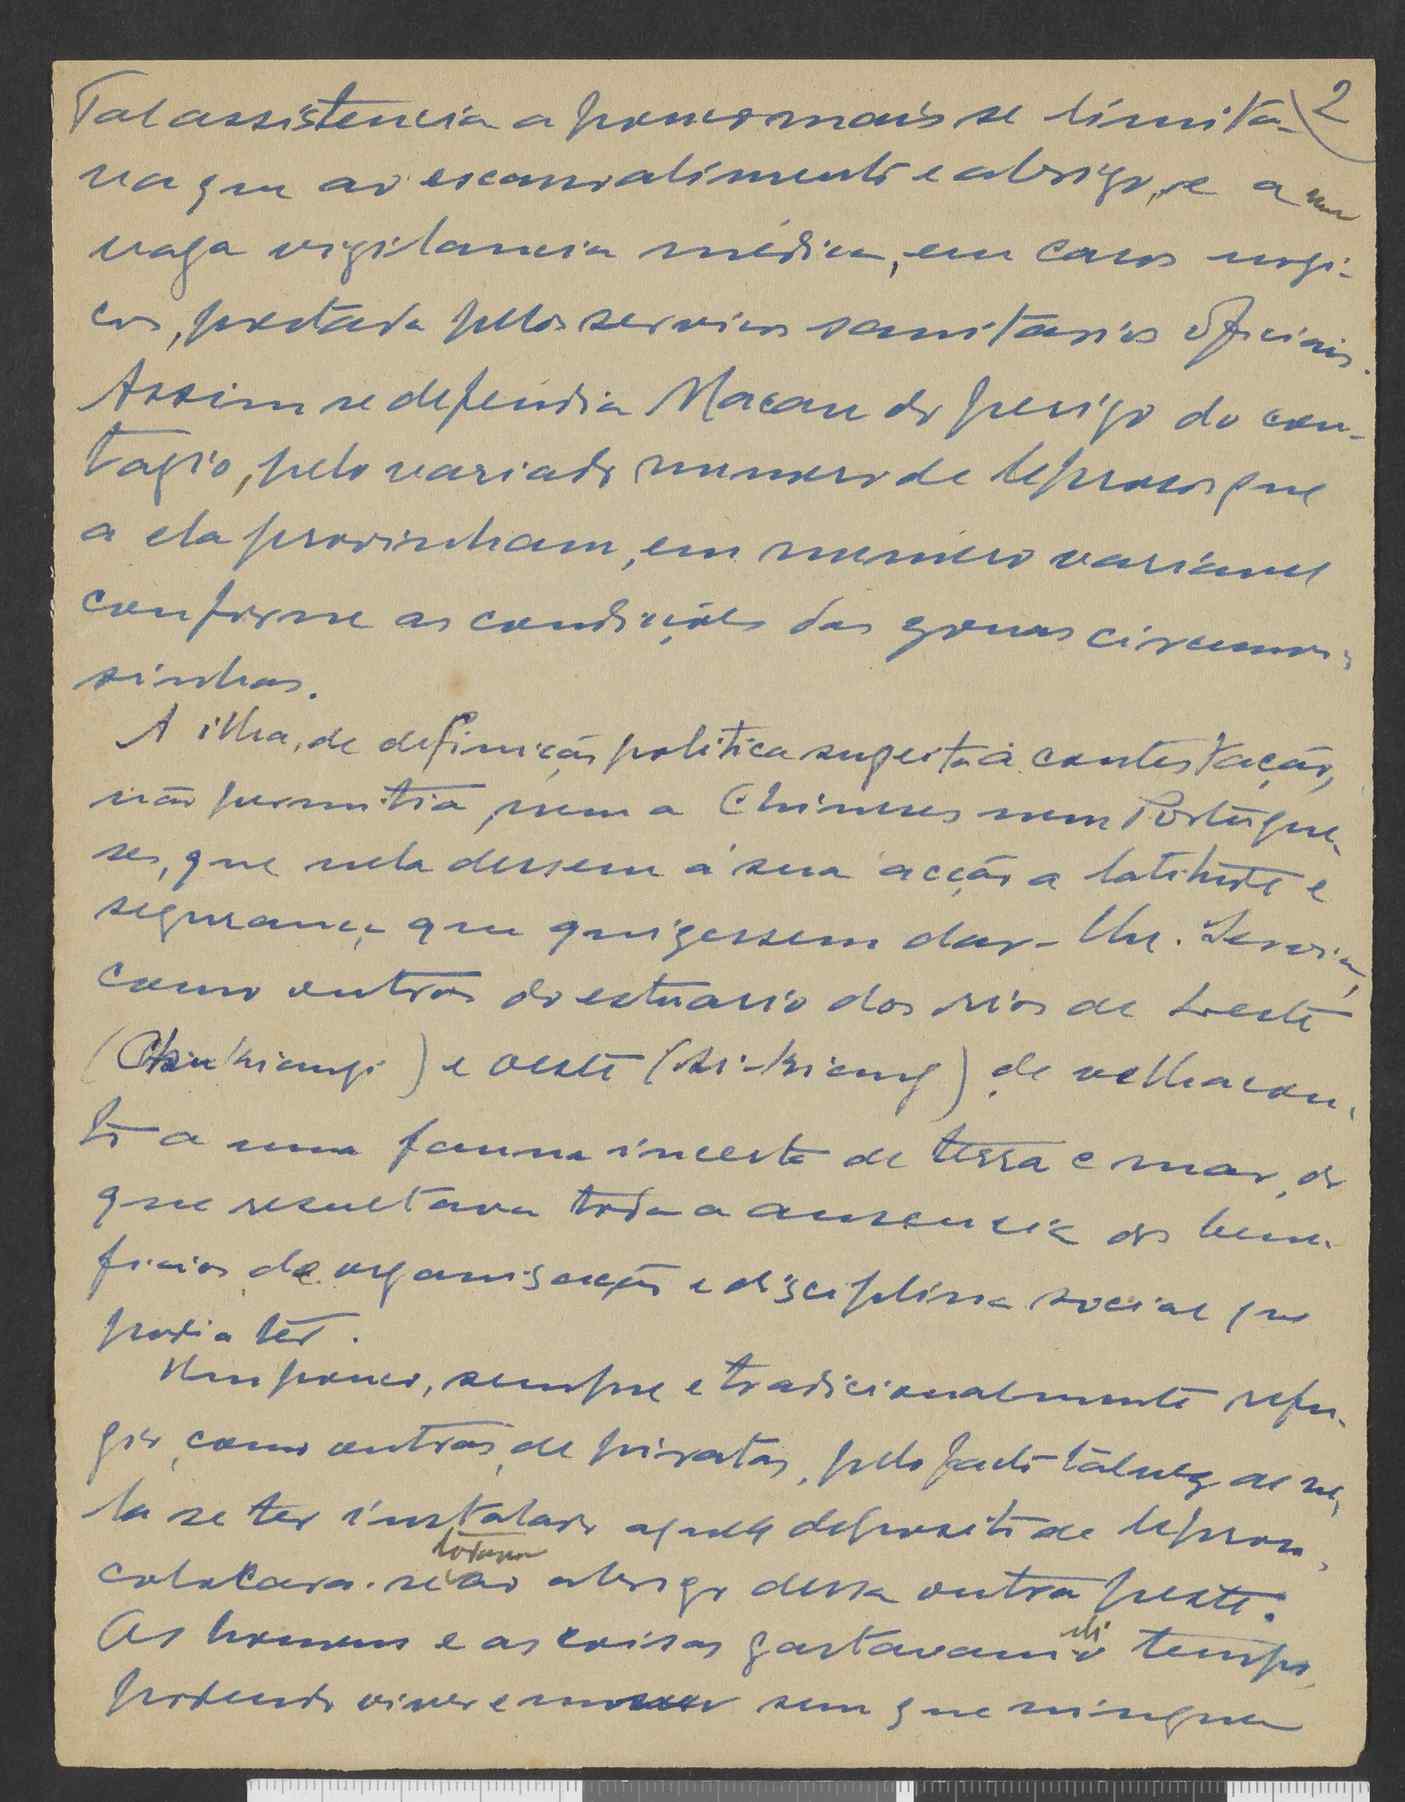 2
Tal assistencia a pouco mais se limita-
va que ao escasso alimento e abrigo, e a uma
vaga vigilancia médica, em casos
cos, prestada pelos serviços sanitarios oficiais.
Assim se defendia Macau do perigo do con-
tagio, pelo variado numero de leprosos que
a ela provinham, em numero variavel
conforme as condições das zonas circumvi-
sinhas.
A ilha, de definição politica sugeita á contestação,
não permitia, nem a Chineses nem Portugue-
ses, que nela dessem á sua acção a latitude e
segurança que quizessem dar-lhe. Servia,
como outras do estuario dos rios de Leste
e oeste (Si-kiang) de
to a uma fauna incerta de terra e mar, do
que resultava toda a ausencia dos bene-
ficios de organisação e disciplina social que
podia ter.
Um pouco, sempre e tradicionalmente refu-
gio, como outras, de piratas, pelo facto talvez de ne-
la se ter instalado aquele deposito de leprosos,
colocara-se ao abrigo dessa outra peste.
Os homens e as coisas gastavam ali o tempo,
podendo viver e morrer sem que ninguem